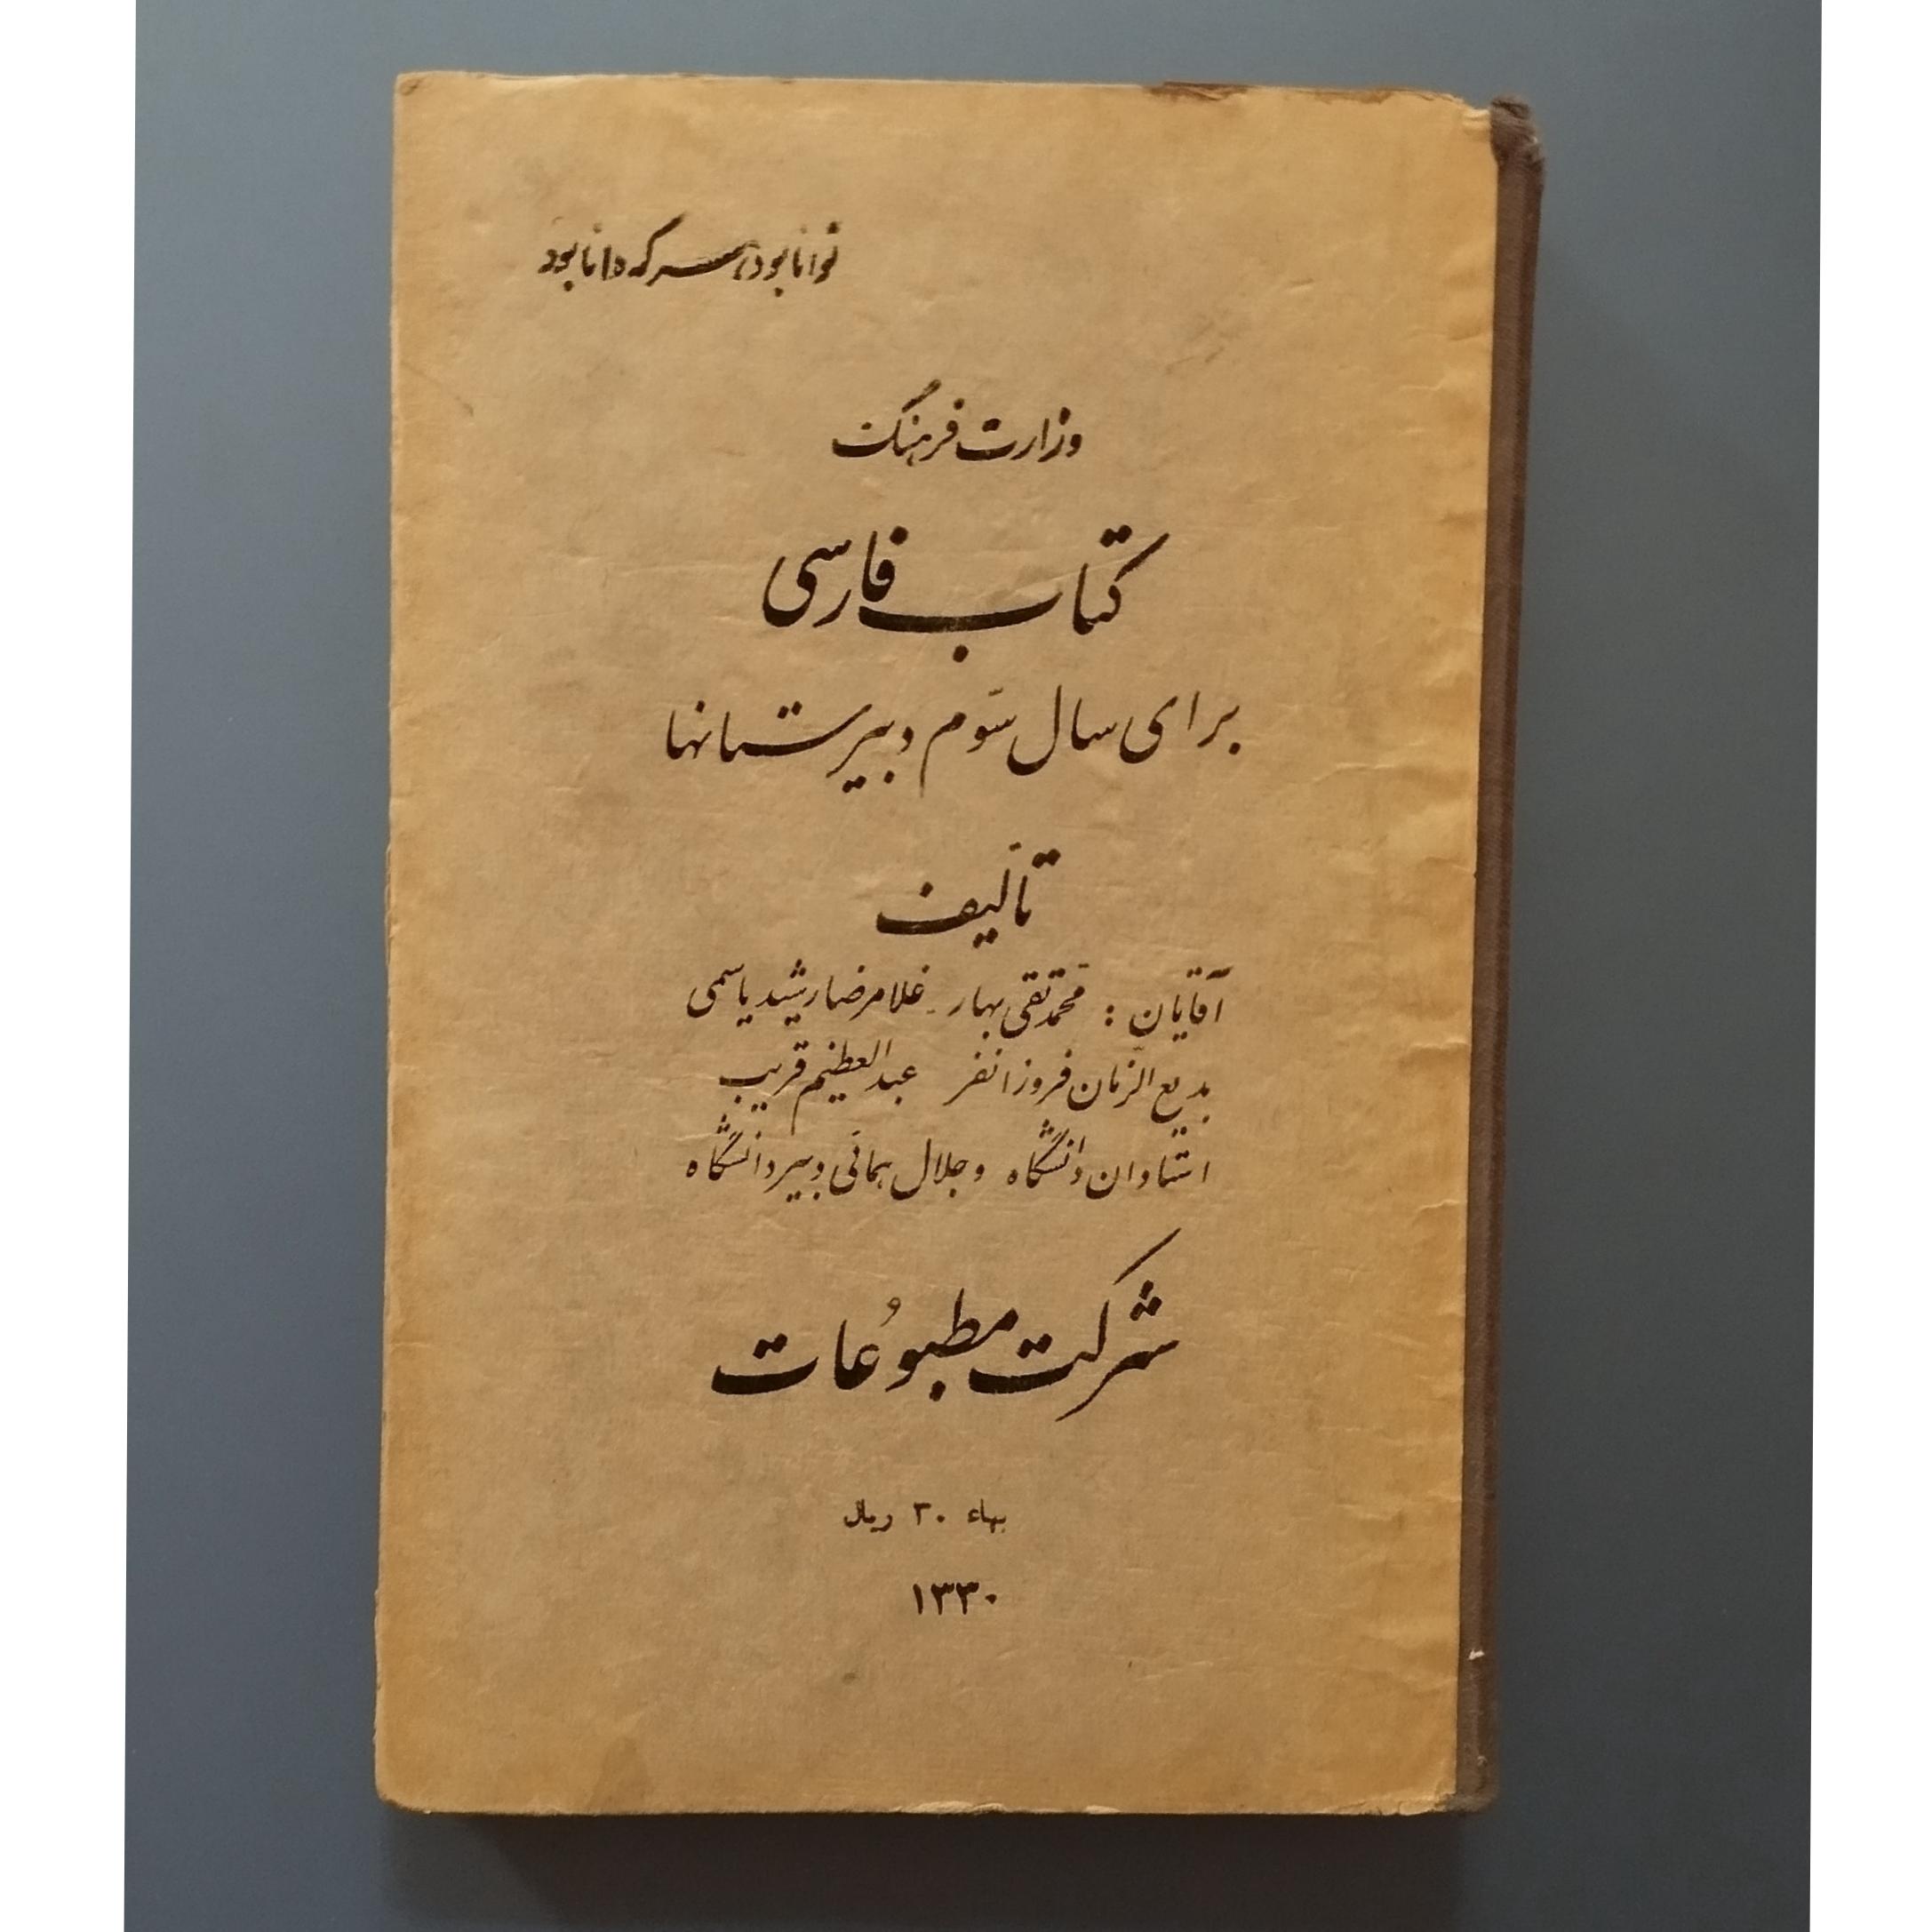 توانا بود هر که دانا بود
وزارت فرهنگ
کتاب فارسی
برای سال سوّم دبیرستانها
تألیف
آقایان : محمّد تقی بهار - غلامرضا رشید یاسمی
بدیع الزّمان فروزانفر عبدالعظیم قریب
استادان دانشگاه و جلال همائی دبیر دانشگاه
شرکت مطبوُعات
بهاء ۳۰ ریال
۱۳۳۰